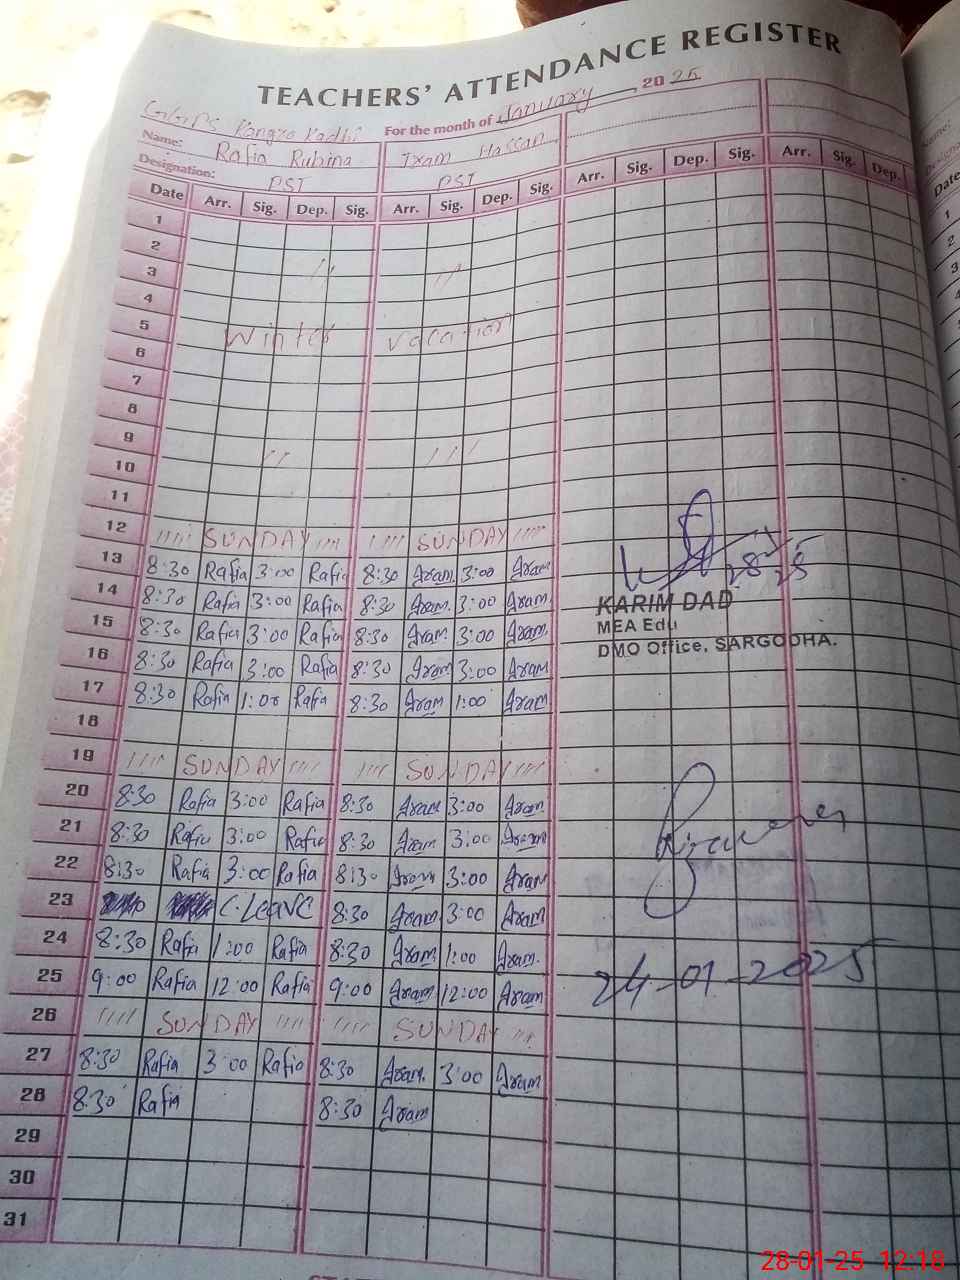 TEACHERS' ATTENDANCE REGISTER
GGPS Kangra Kadhi For the month of January, 2025
Name: Rafia Rubina Iram Hassan
Designation: PST PST
Date Arr. Sig. Dep. Sig. Arr. Sig. Dep. Sig. Arr. Sig. Dep. Sig. Arr. Sig. Dep.
1
2
3 // ///
4
5 Winter vacation
6
7
8
9
10 // ///
11
12 //// SUNDAY //// //// SUNDAY ////
13 8:30 Rafia 3:00 Rafia 8:30 Iram 3:00 Iram
14 8:30 Rafia 3:00 Rafia 8:30 Iram 3:00 Iram
15 8:30 Rafia 3:00 Rafia 8:30 Iram 3:00 Iram
16 8:30 Rafia 3:00 Rafia 8:30 Iram 3:00 Iram
17 8:30 Rafia 1:00 Rafia 8:30 Iram 1:00 Iram
18
19 //// SUNDAY //// //// SUNDAY ////
20 8:30 Rafia 3:00 Rafia 8:30 Iram 3:00 Iram
21 8:30 Rafia 3:00 Rafia 8:30 Iram 3:00 Iram
22 8:30 Rafia 3:00 Rafia 8:30 Iram 3:00 Iram
23 C.Leave 8:30 Iram 3:00 Iram
24 8:30 Rafia 1:00 Rafia 8:30 Iram 1:00 Iram
25 9:00 Rafia 12:00 Rafia 9:00 Iram 12:00 Iram
26 //// SUNDAY //// //// SUNDAY ///
27 8:30 Rafia 3:00 Rafia 8:30 Iram 3:00 Iram
28 8:30 Rafia 8:30 Iram
29
30
31
KARIM DAD
MEA Edu
DMO Office, SARGODHA.
24-01-2025
Name:
Date
1
2
3
4
5
6
7
8
9
10
11
12
13
28-01-25 12:18